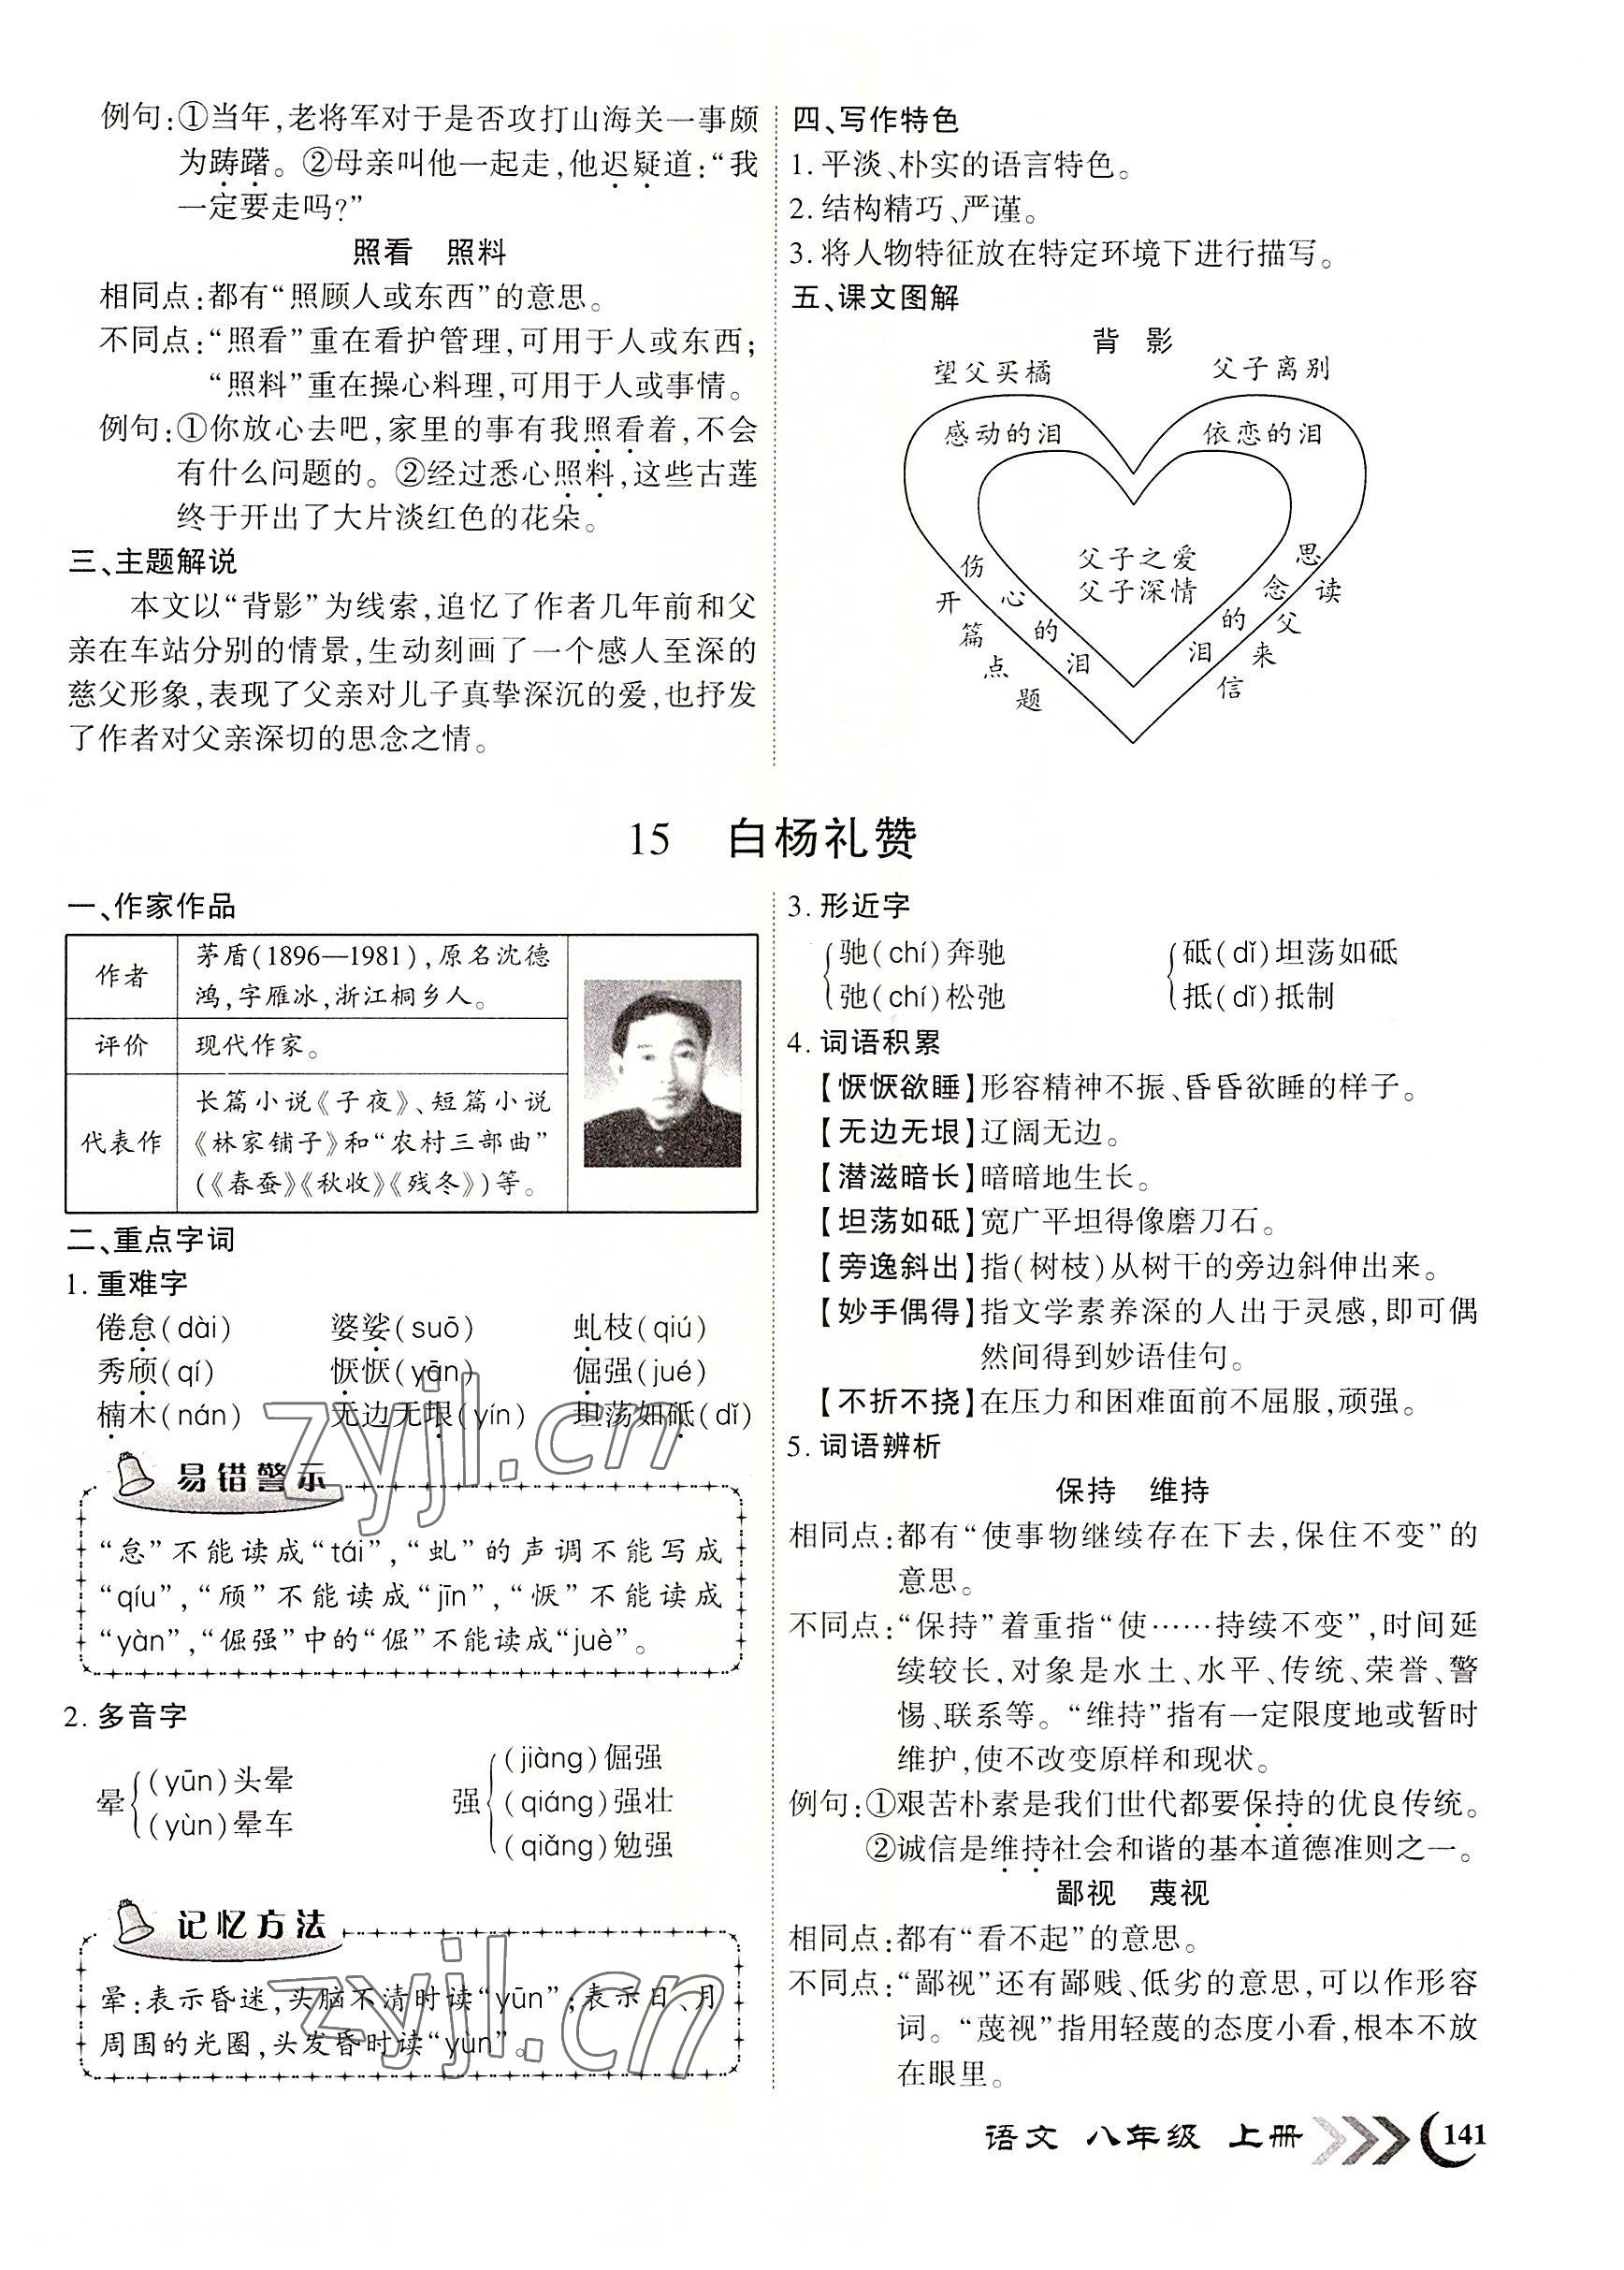 例句:①当年,老将军对于是否攻打山海关一事颇
为踌躇。②母亲叫他一起走,他迟疑道:“我
一定要走吗?”
照看　照料
相同点:都有“照顾人或东西”的意思。
不同点:“照看”重在看护管理,可用于人或东西;
“照料”重在操心料理,可用于人或事情。
例句:①你放心去吧,家里的事有我照看着,不会
有什么问题的。②经过悉心照料,这些古莲
终于开出了大片淡红色的花朵。
三、主题解说
本文以“背影”为线索,追忆了作者几年前和父
亲在车站分别的情景,生动刻画了一个感人至深的
慈父形象,表现了父亲对儿子真挚深沉的爱,也抒发
了作者对父亲深切的思念之情。
四、写作特色
1. 平淡、朴实的语言特色。
2. 结构精巧、严谨。
3. 将人物特征放在特定环境下进行描写。
五、课文图解
背　影
望父买橘　父子离别
感动的泪　依恋的泪
父子之爱
父子深情
伤心的泪
开篇点题
思念的泪
读父来信
15　白杨礼赞
一、作家作品
作者　茅盾(1896—1981),原名沈德
鸿,字雁冰,浙江桐乡人。
评价　现代作家。
代表作　长篇小说《子夜》、短篇小说
《林家铺子》和“农村三部曲”
(《春蚕》《秋收》《残冬》)等。
二、重点字词
1. 重难字
倦怠(dài)　婆娑(suō)　虬枝(qiú)
秀颀(qí)　恹恹(yān)　倔强(jué)
楠木(nán)　无边无垠(yín)　坦荡如砥(dǐ)
易错警示
“怠”不能读成“tái”,“虬”的声调不能写成
“qíu”,“颀”不能读成“jīn”,“恹”不能读成
“yàn”,“倔强”中的“倔”不能读成“juè”。
2. 多音字
晕 (yūn)头晕
(yùn)晕车
强 (jiàng)倔强
(qiáng)强壮
(qiǎng)勉强
记忆方法
晕:表示昏迷,头脑不清时读“yūn”;表示日、月
周围的光圈,头发昏时读“yùn”。
3. 形近字
驰(chí)奔驰　砥(dǐ)坦荡如砥
弛(chí)松弛　抵(dǐ)抵制
4. 词语积累
【恹恹欲睡】形容精神不振、昏昏欲睡的样子。
【无边无垠】辽阔无边。
【潜滋暗长】暗暗地生长。
【坦荡如砥】宽广平坦得像磨刀石。
【旁逸斜出】指(树枝)从树干的旁边斜伸出来。
【妙手偶得】指文学素养深的人出于灵感,即可偶
然间得到妙语佳句。
【不折不挠】在压力和困难面前不屈服,顽强。
5. 词语辨析
保持　维持
相同点:都有“使事物继续存在下去,保住不变”的
意思。
不同点:“保持”着重指“使……持续不变”,时间延
续较长,对象是水土、水平、传统、荣誉、警
惕、联系等。“维持”指有一定限度地或暂时
维护,使不改变原样和现状。
例句:①艰苦朴素是我们世代都要保持的优良传统。
②诚信是维持社会和谐的基本道德准则之一。
鄙视　蔑视
相同点:都有“看不起”的意思。
不同点:“鄙视”还有鄙贱、低劣的意思,可以作形容
词。“蔑视”指用轻蔑的态度小看,根本不放
在眼里。
语文 八年级 上册 141
zyjl.cn
zyjl.cn